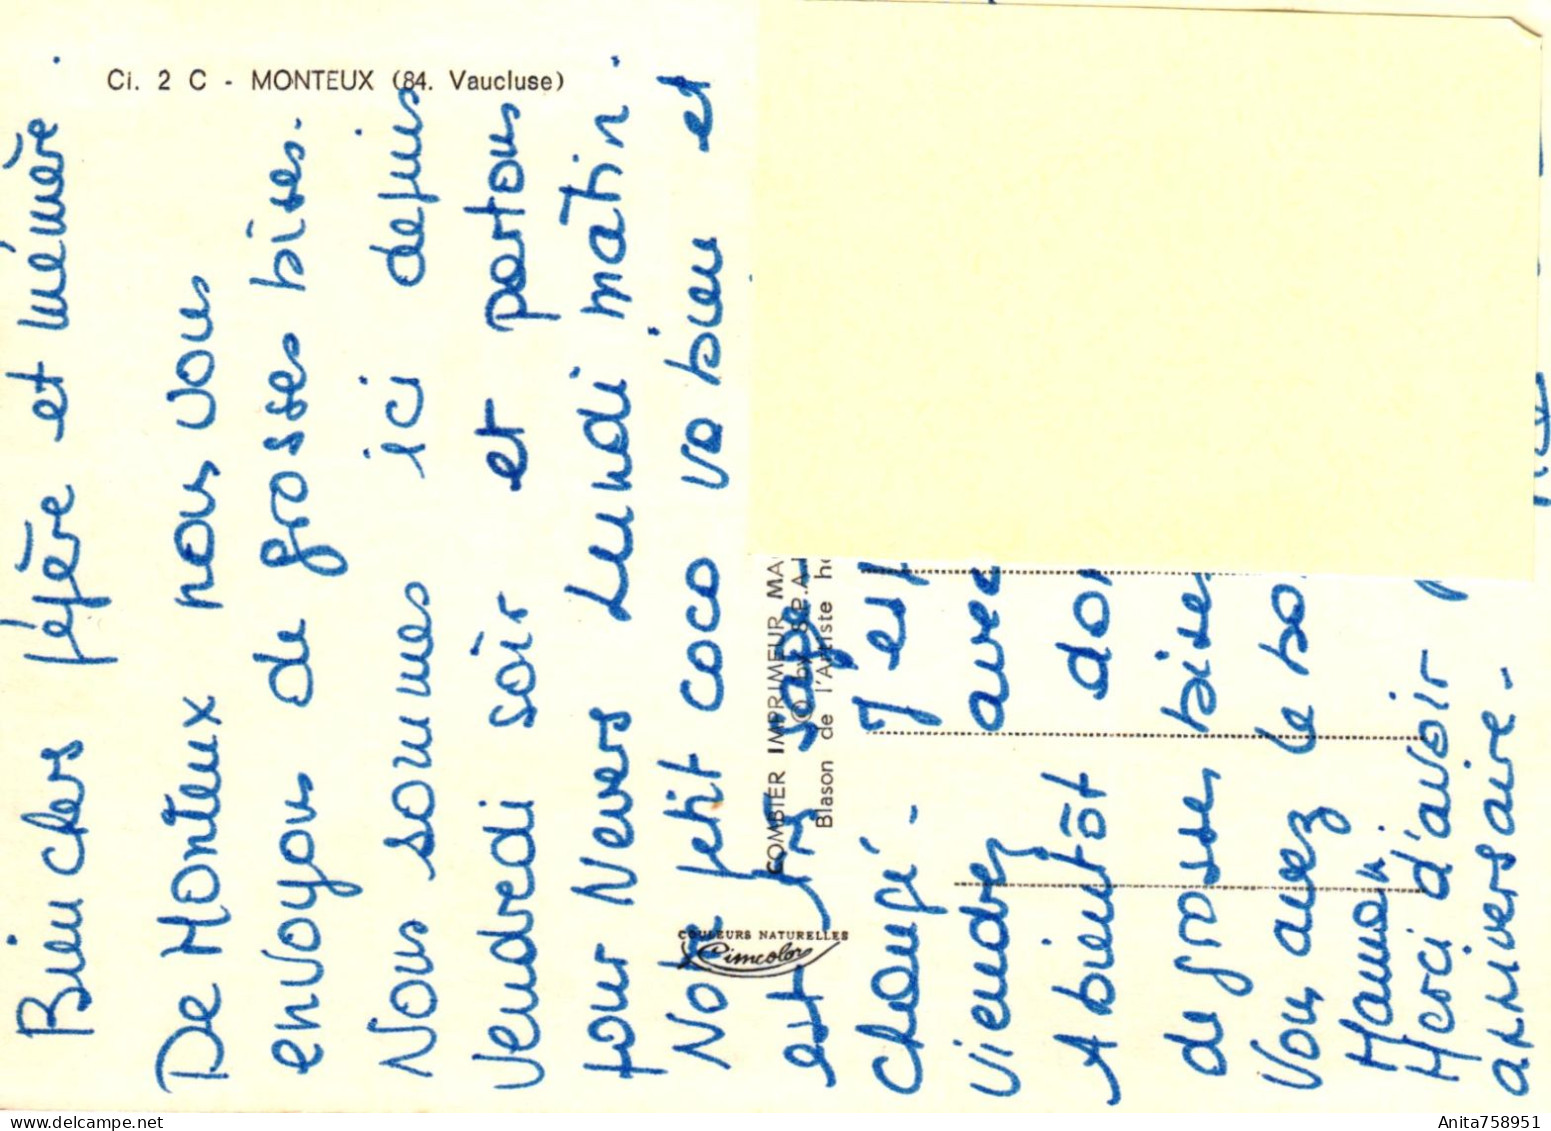 Ci. 2 C - MONTEUX (84. Vaucluse)
Bien chers pépère et mémère.
De Monteux nous vous
envoyons de grosses bises.
Nous sommes ici depuis
Vendredi soir et partons
pour Nevers Lundi matin.
Notre petit coco va bien et
est très sage
changé - J'esp
viendrez avec
A bientôt don
de grosses bises
Vous avez le bo
Mamoin
Merci d'avoir p
anniversaire -
COMBIER IMPRIMEUR MA
© by S.P.A.
Blason de l'Artiste h
COULEURS NATURELLES
Cimcolor
Anita758951